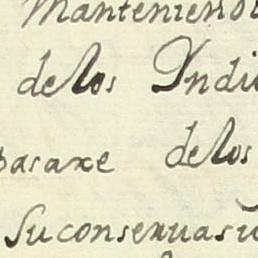 Manteniendo
delos Indi
pasaxe delos
Suconseruasu